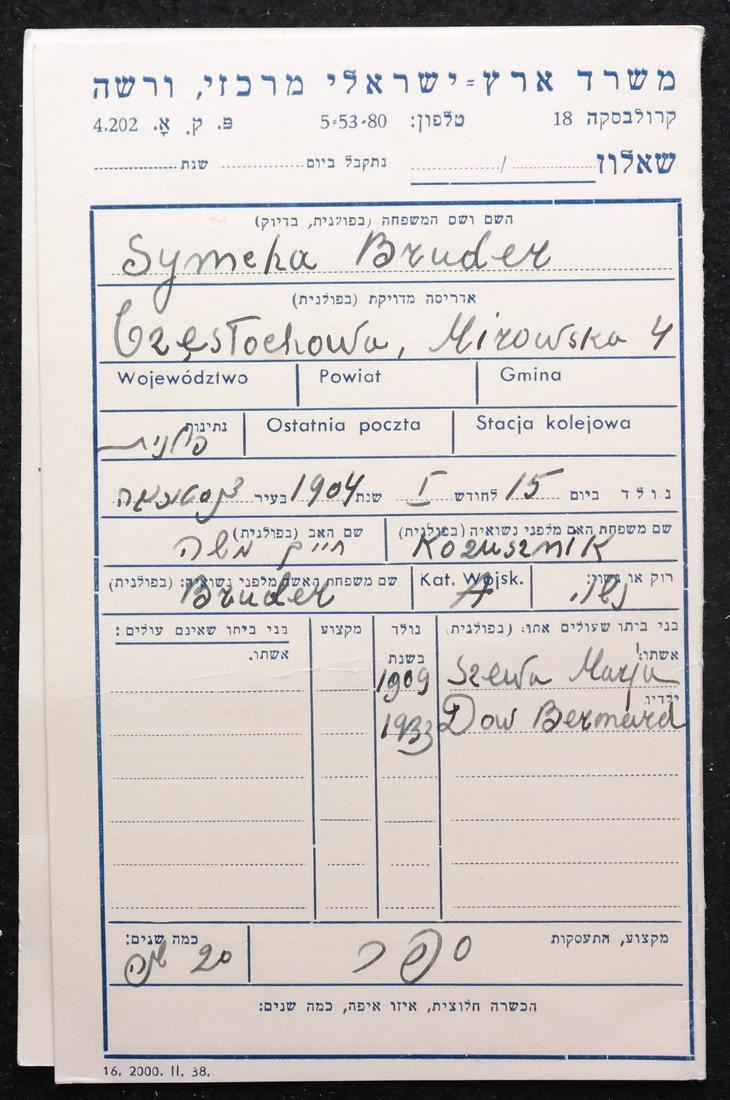 משרד ארץ=ישראלי מרכזי, ורשה
קרולבסקה 18 טלפון: 5-53-80 פ. ק. אָ. 4.202
שאלון / נתקבל ביום שנת
השם ושם המשפחה (בפולנית, בדיוק)
Symcha Bruder
אדריסה מדויקת (בפולנית)
Częstochowa, Mirowska 4
Województwo Powiat Gmina
נתינות פולנית Ostatnia poczta Stacja kolejowa
נולד ביום 15 לחודש I שנת 1904 בעיר צ'נסטוכובה
שם משפחת האם מלפני נשואיה (בפולנית) שם האב (בפולנית)
Kożusznik חיים משה
רוק או נשוי: נשוי Kat. Wojsk. A שם משפחת האשה מלפני נשואיה: (בפולנית)
Bruder
בני ביתו שעולים אתו: (בפולנית) נולד בשנת מקצוע בני ביתו שאינם עולים:
אשתו: Szewa Marja 1909 אשתו.
ילדיו Dow Bernard 1933
מקצוע, התעסקות ספר כמה שנים: 20 שנה
הכשרה חלוצית, איזו איפה, כמה שנים:
16. 2000. II. 38.